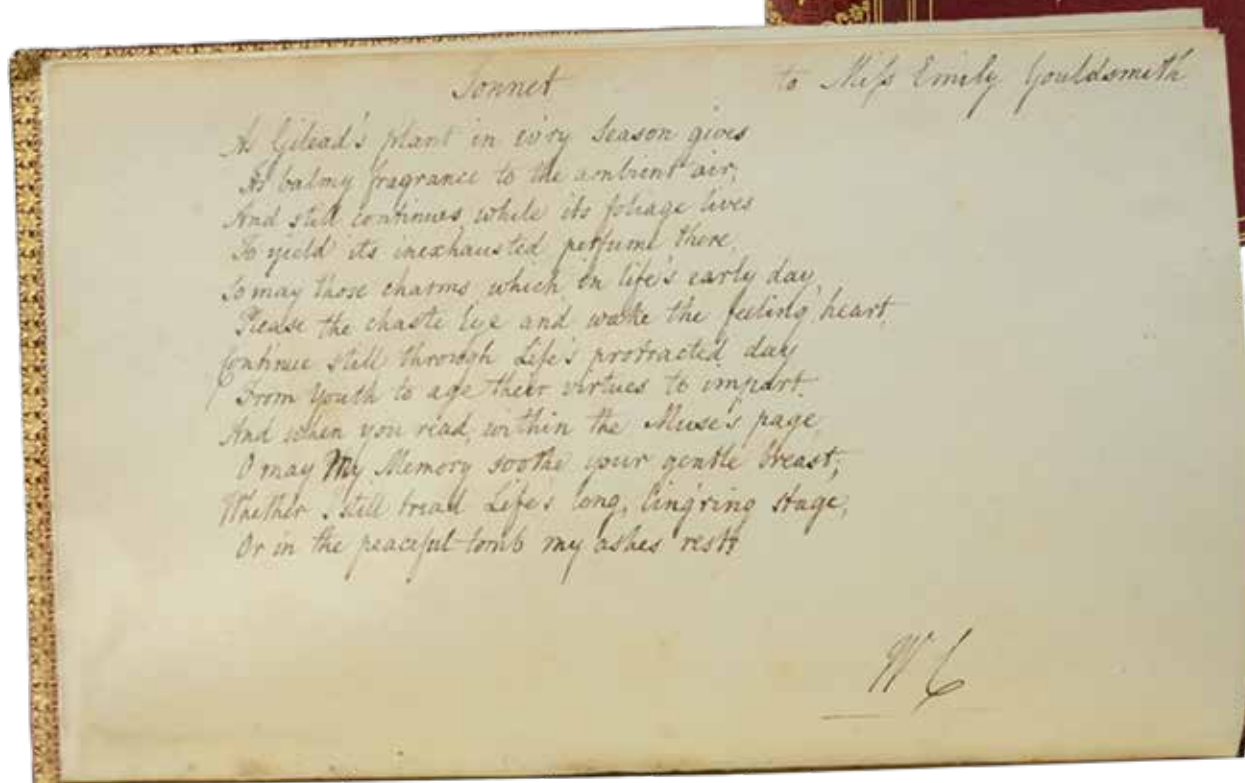 Sonnet to Miſs Emily Gouldsmith
As Gilead's plant in ev'ry Season gives
Its balmy fragrance to the ambient air;
And still continues while its foliage lives
To yield its inexhausted perfume there,
So may those charms which in life's early day,
Please the chaste Eye and wake the feeling heart,
Continue still through Life's protracted day
From Youth to age their virtues to impart.
And when you read, within the Muse's page
O may My Memory soothe your gentle breast;
Whether I still tread Life's long, ling'ring stage,
Or in the peaceful tomb my ashes rest.
W C